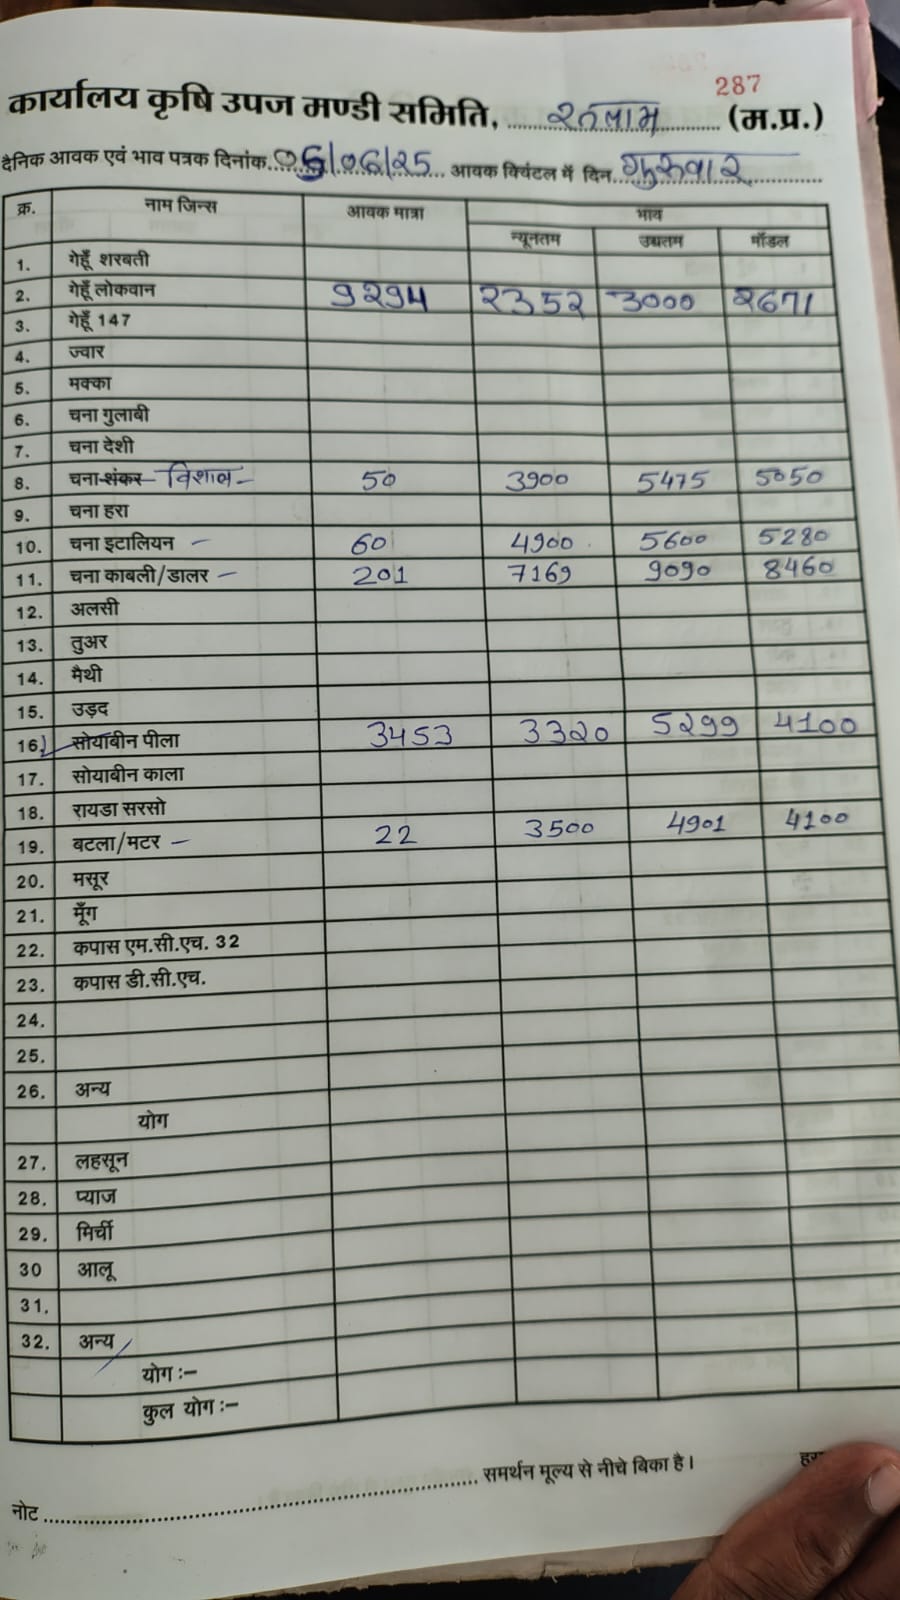 287
कार्यालय कृषि उपज मण्डी समिति, रतलाम (म.प्र.)
दैनिक आवक एवं भाव पत्रक दिनांक 05/06/25 आवक क्विंटल में दिन गुरुवार
क्र. नाम जिन्स आवक मात्रा भाव
न्यूनतम उच्चतम मॉडल
1. गेहूँ शरबती
2. गेहूँ लोकवान 9294 2352 3000 2671
3. गेहूँ 147
4. ज्वार
5. मक्का
6. चना गुलाबी
7. चना देशी
8. चना शंकर विशाल 50 3900 5475 5050
9. चना हरा
10. चना इटालियन 60 4900 5600 5280
11. चना काबली/डालर 201 7169 9090 8460
12. अलसी
13. तुअर
14. मैथी
15. उड़द
16. सोयाबीन पीला 3453 3320 5299 4100
17. सोयाबीन काला
18. रायडा सरसो
19. बटला/मटर 22 3500 4901 4100
20. मसूर
21. मूँग
22. कपास एम.सी.एच. 32
23. कपास डी.सी.एच.
24.
25.
26. अन्य
योग
27. लहसून
28. प्याज
29. मिर्ची
30 आलू
31.
32. अन्य
योग :–
कुल योग :–
समर्थन मूल्य से नीचे बिका है।
नोट